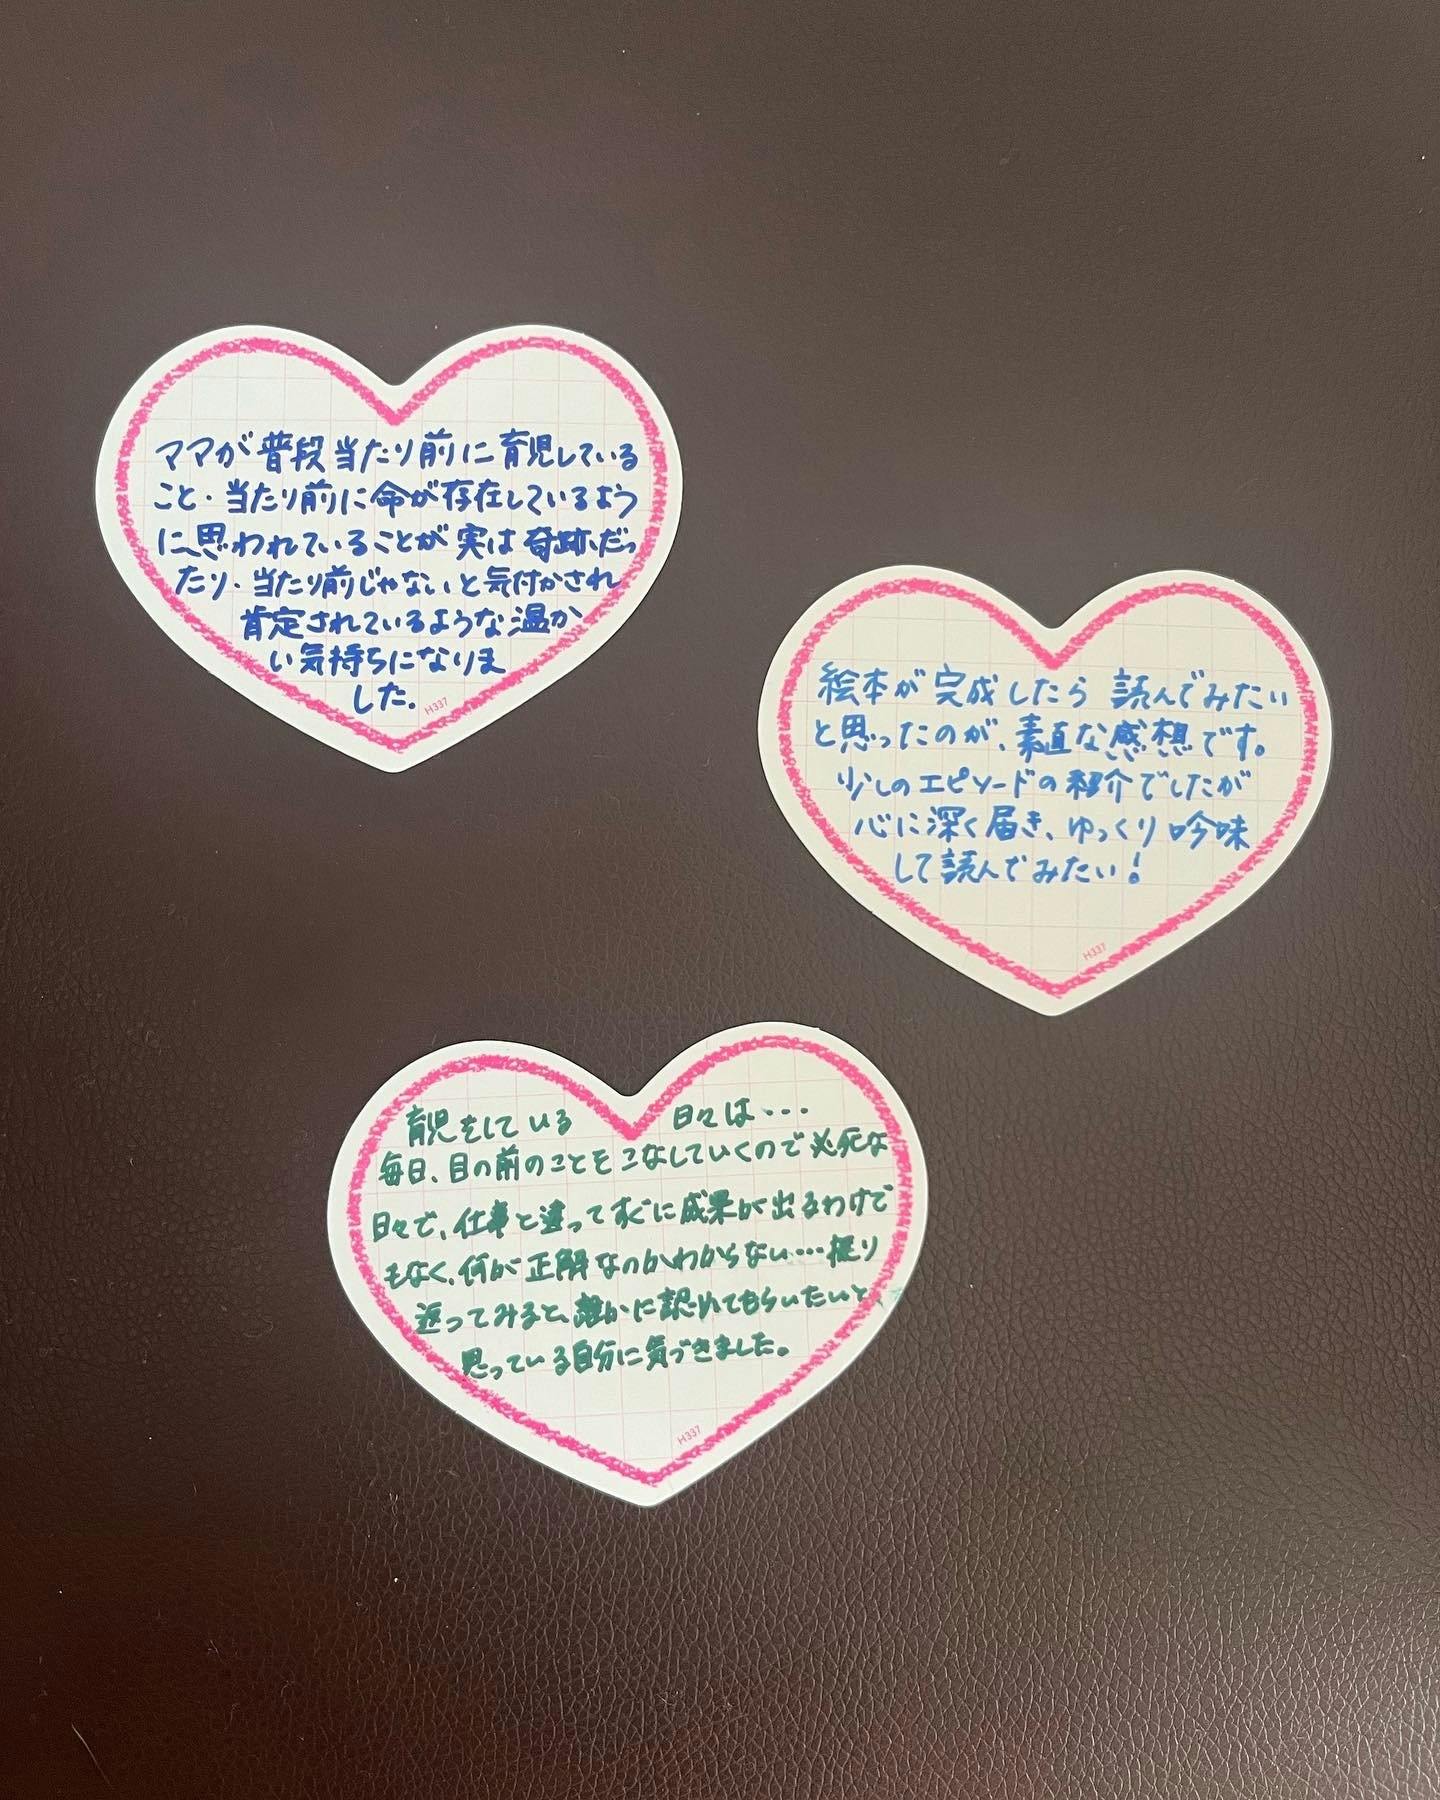 ママが普段当たり前に育児している
こと・当たり前に命が存在しているよう
に思われていることが実は奇跡だっ
たり・当たり前じゃないと気付かされ
肯定されているような温か
い気持ちになりま
した。
H337
絵本が完成したら読んでみたい
と思ったのが、素直な感想です。
少しのエピソードの紹介でしたが
心に深く届き、ゆっくり吟味
して読んでみたい!
H337
育児をしている 日々は・・・
毎日、目の前のことをこなしていくので必死な
日々で、仕事と違ってすぐに成果が出るわけで
もなく、何が正解なのかわからない…振り
返ってみると、誰かに認めてもらいたいと
思っている自分に気づきました。
H337